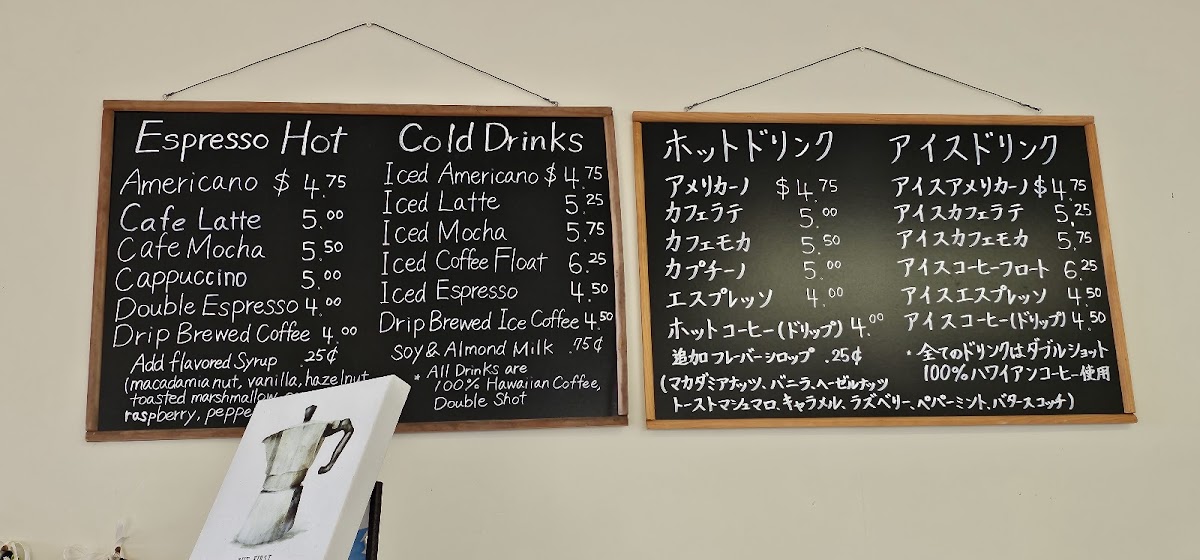 Espresso Hot
Americano $ 4.75
Cafe Latte 5.00
Cafe Mocha 5.50
Cappuccino 5.00
Double Espresso 4.00
Drip Brewed Coffee 4.00
Add flavored Syrup .25¢
(macadamia nut, vanilla, hazelnut
toasted marshmallow,
raspberry,
Cold Drinks
Iced Americano $ 4.75
Iced Latte 5.25
Iced Mocha 5.75
Iced Coffee Float 6.25
Iced Espresso 4.50
Drip Brewed Ice Coffee 4.50
Soy & Almond Milk .75¢
* All Drinks are
100% Hawaiian Coffee,
Double Shot
ホットドリンク
アメリカーノ $ 4.75
カフェラテ 5.00
カフェモカ 5.50
カプチーノ 5.00
エスプレッソ 4.00
ホットコーヒー(ドリップ) 4.00
追加フレーバーシロップ .25¢
(マカダミアナッツ、バニラ、ヘーゼルナッツ
トーストマシュマロ、キャラメル、ラズベリー、ペパーミント、バタースコッチ)
アイスドリンク
アイスアメリカーノ $ 4.75
アイスカフェラテ 5.25
アイスカフェモカ 5.75
アイスコーヒーフロート 6.25
アイスエスプレッソ 4.50
アイスコーヒー(ドリップ) 4.50
* 全てのドリンクはダブルショット
100%ハワイアンコーヒー使用
FIRST